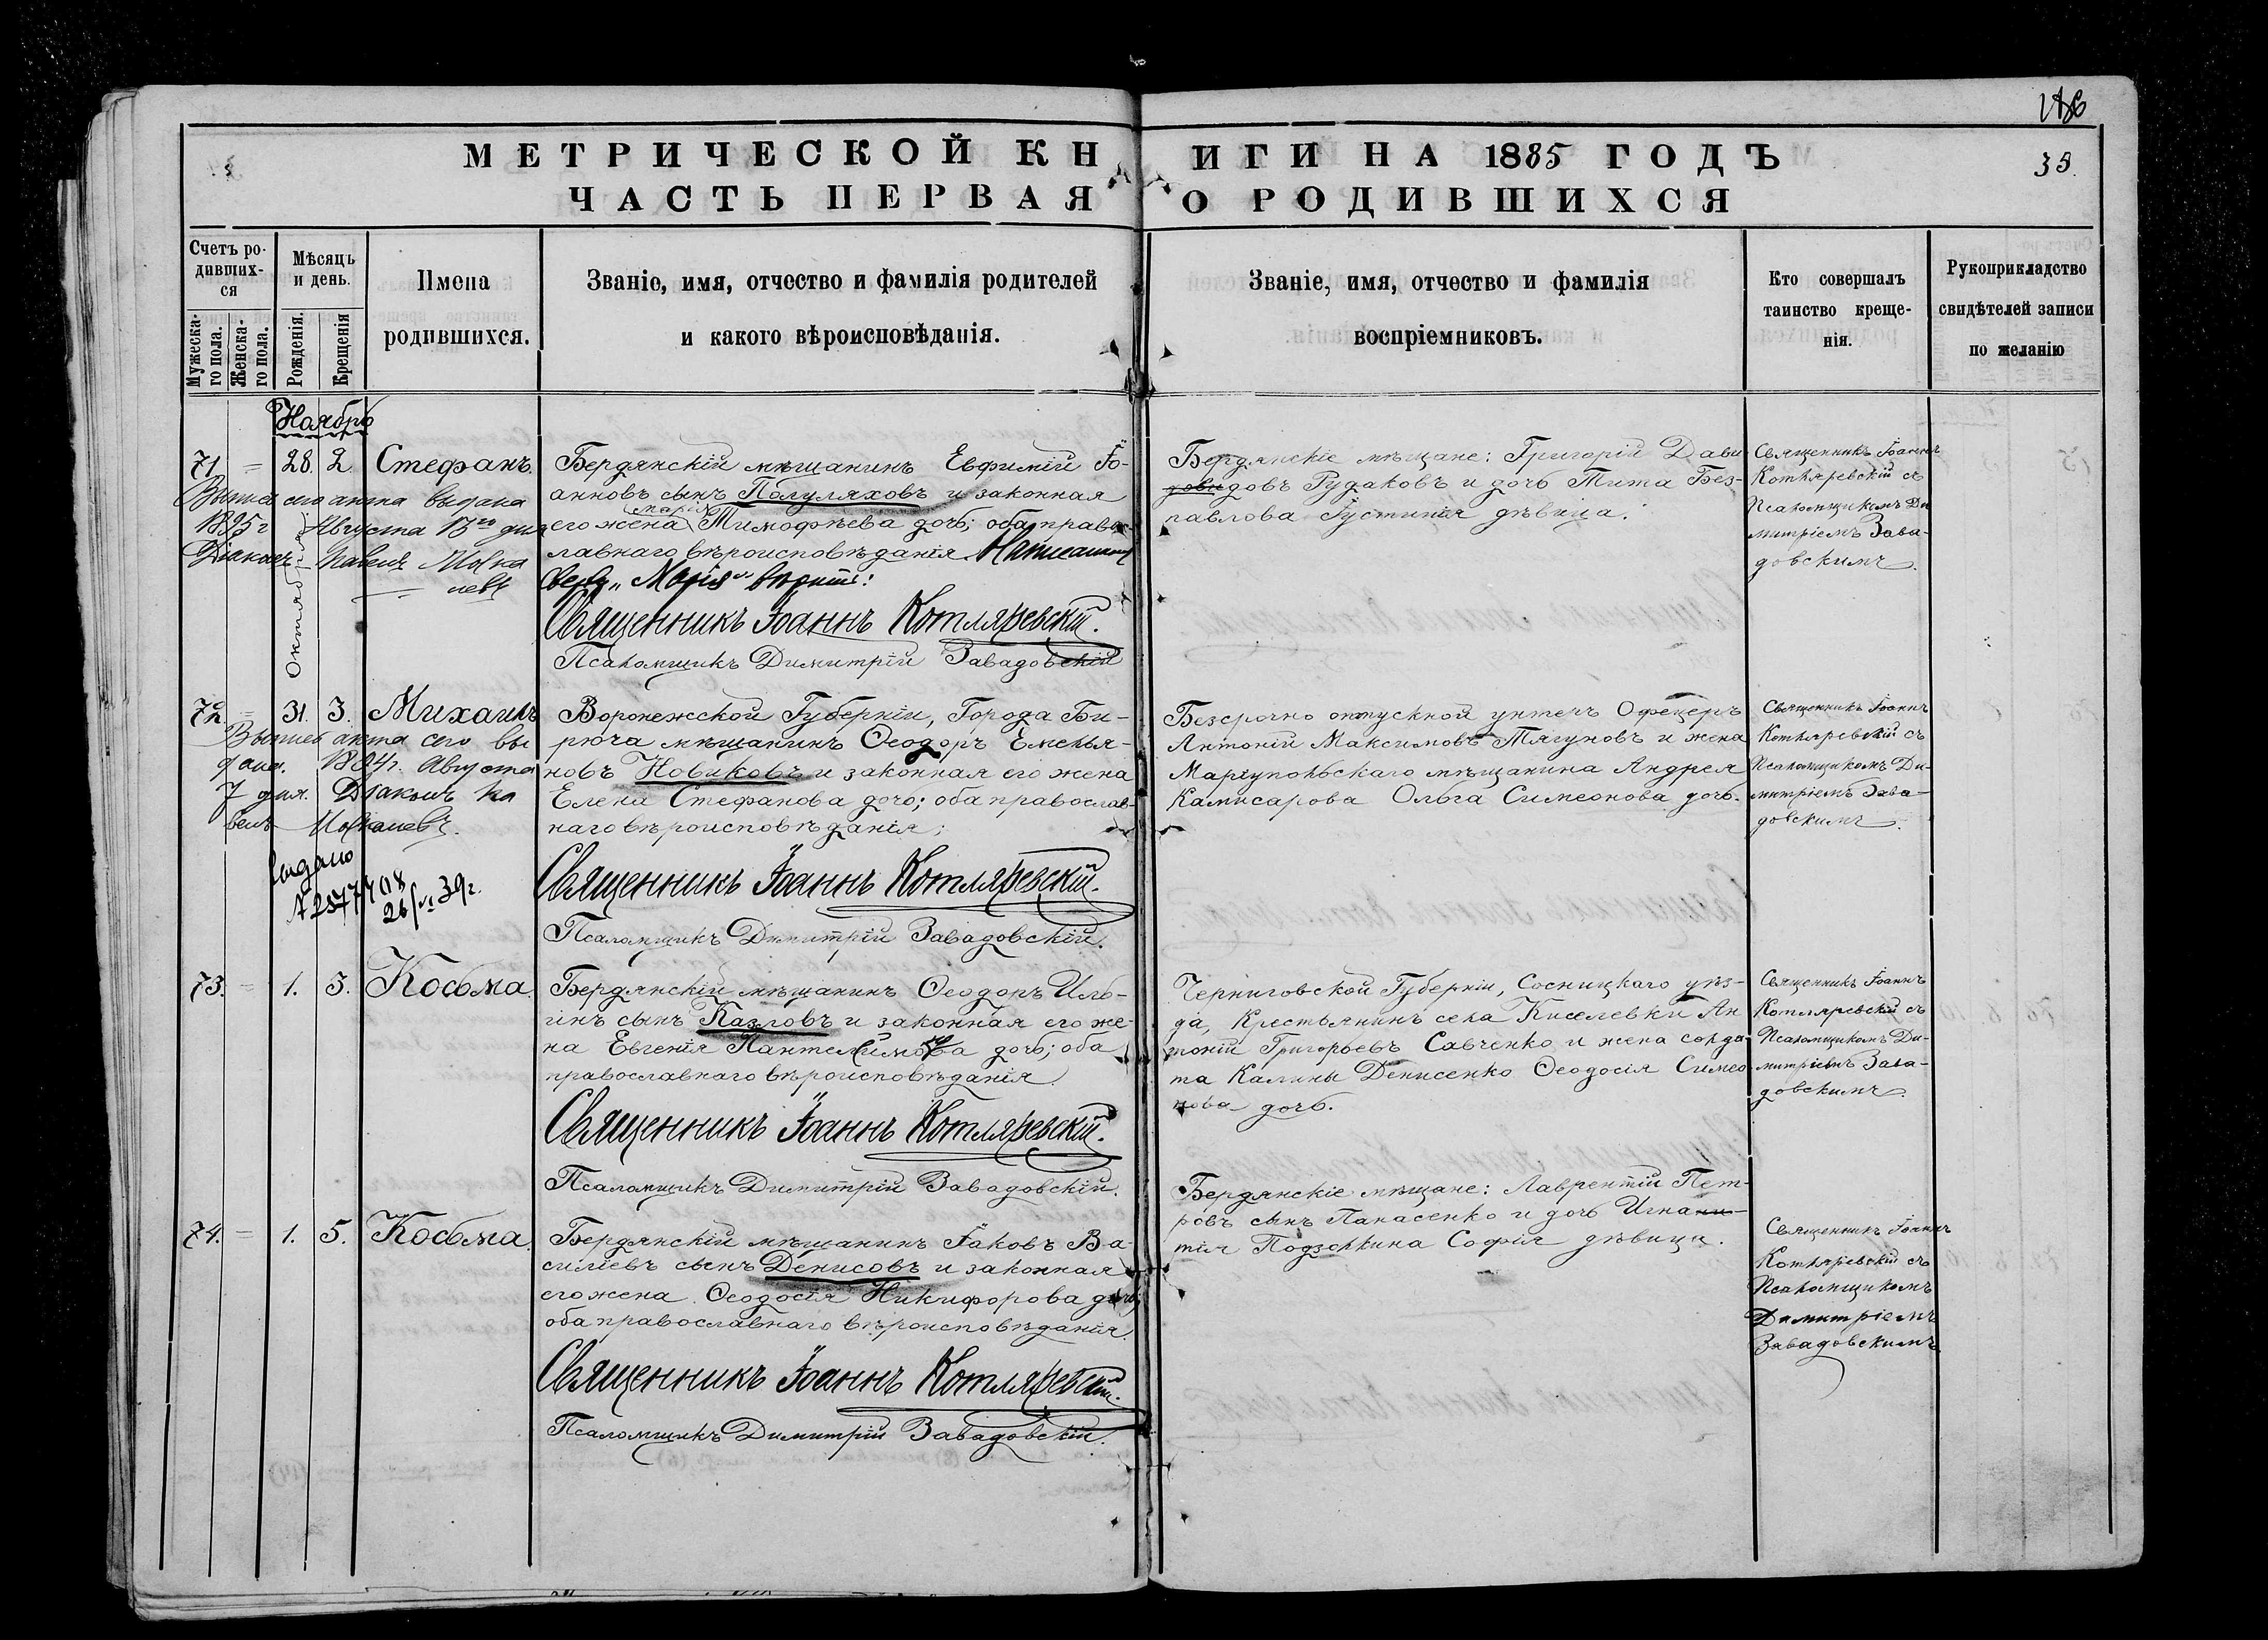 186
МЕТРИЧЕСКОЙ КНИГИ НА 1885 ГОДЪ
35.
ЧАСТЬ ПЕРВАЯ О РОДИВШИХСЯ
Счетъ ро-
дивших-
ся
Мужеска-
го пола.
Женска-
го пола.
Мѣсяцъ
и день.
Рожденія.
Крещенія
Имена
родившихся.
Званіе, имя, отчество и фамилія родителей
и какого вѣроисповѣданія.
Званіе, имя, отчество и фамилія
воспріемниковъ.
Кто совершалъ
таинство креще-
нія.
Рукоприкладство
свидѣтелей записи
по желанію
Ноябрь
71 = 28. 2 Стефанъ.
Октября
Выпись сего акта выдана
1895 г Августа 13го дня
Діаконъ Павелъ
Бердянскій мѣщанинъ Евфимій Іо-
анновъ сынъ Полуляховъ и законная
Марія
его жена Тимофѣева дочь; оба право-
славнаго вѣроисповѣданія. Написанному
сверху „Марія" вѣрить:
Священникъ Іоаннъ Котляревскій.
Псаломщикъ Димитрій Завадовскій
Бердянскіе мѣщане: Григорій Дави
дови довъ Рудаковъ и дочь Тита Без-
павлова Іустинія дѣвица.
Священникъ Іоаннъ
Котляревскій съ
Псаломщикомъ Ди
митріемъ Зава-
довскимъ.
72. = 31. 3. Михаилъ
Выпись акта сего вы
дана. Августа
7 дня. Діаконъ Па
велъ
Выдано
26/VI 39 г.
Воронежской Губерніи, Города Би-
рюча мѣщанинъ Ѳеодоръ Емелья-
новъ Новиковъ и законная его жена
Елена Стефанова дочь; оба православ-
наго вѣроисповѣданія;
Священникъ Іоаннъ Котляревскій.
Псаломщикъ Димитрій Завадовскій.
Безсрочно отпускной унтеръ Офецеръ
Антоній Максимовъ Тягуновъ и жена
Маріупольскаго мѣщанина Андрея
Камисарова Ольга Симеонова дочь.
Священникъ Іоаннъ
Котляревскій съ
Псаломщикомъ Ди-
митріемъ Зава-
довскимъ.
73. = 1. 3. Косьма.
Бердянскій мѣщанинъ Ѳеодоръ Иль-
инъ сынъ Казловъ и законная его же-
на Евгенія Пантелеимонова дочь; оба
православнаго вѣроисповѣданія.
Священникъ Іоаннъ Котляревскій.
Псаломщикъ Димитрій Завадовскій.
Черниговской Губерніи, Сосницкаго уѣз-
да, Крестьянинъ села Киселевки Ан
тоній Григорьевъ Савченко и жена солда-
та Калины Денисенко Ѳеодосія Симео
нова дочь.
Священникъ Іоаннъ
Котляревскій съ
Псаломщикомъ Ди-
митріемъ Зава-
довскимъ.
74. = 1. 5. Косьма.
Бердянскій мѣщанинъ Іаковъ Ва-
силіевъ сынъ Денисовъ и законная
его жена Ѳеодосія Никифорова дочь;
оба православнаго вѣроисповѣданія.
Священникъ Іоаннъ Котляревскій.
Псаломщикъ Димитрій Завадовскій.
Бердянскіе мѣщане: Лаврентій Пет-
ровъ сынъ Панасенко и дочь Игна
тія Подзолкина Софія дѣвица.
Священникъ Іоаннъ
Котляревскій съ
Псаломщикомъ
Димитріемъ
Завадовскимъ